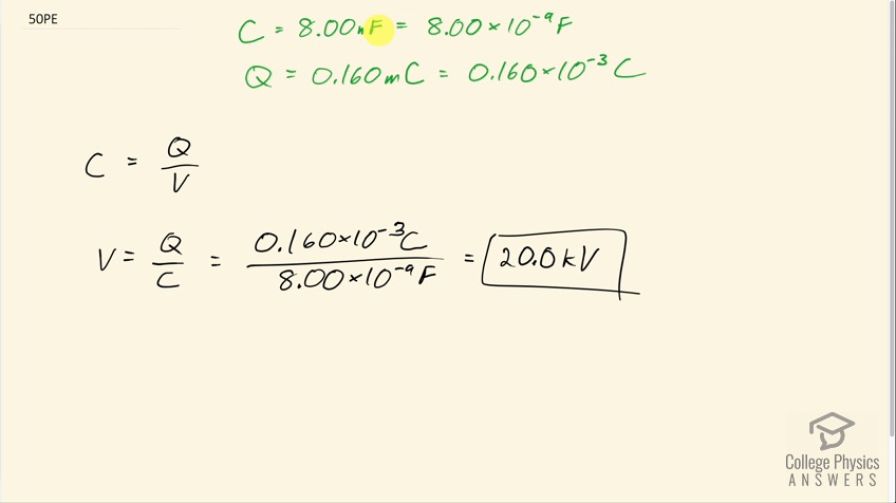 50PE
C = 8.00nF = 8.00×10⁻⁹F
Q = 0.160mC = 0.160×10⁻³ C
C = Q/V
V = Q/C = 0.160×10⁻³C / 8.00×10⁻⁹F = 20.0kV
College Physics
ANSWERS